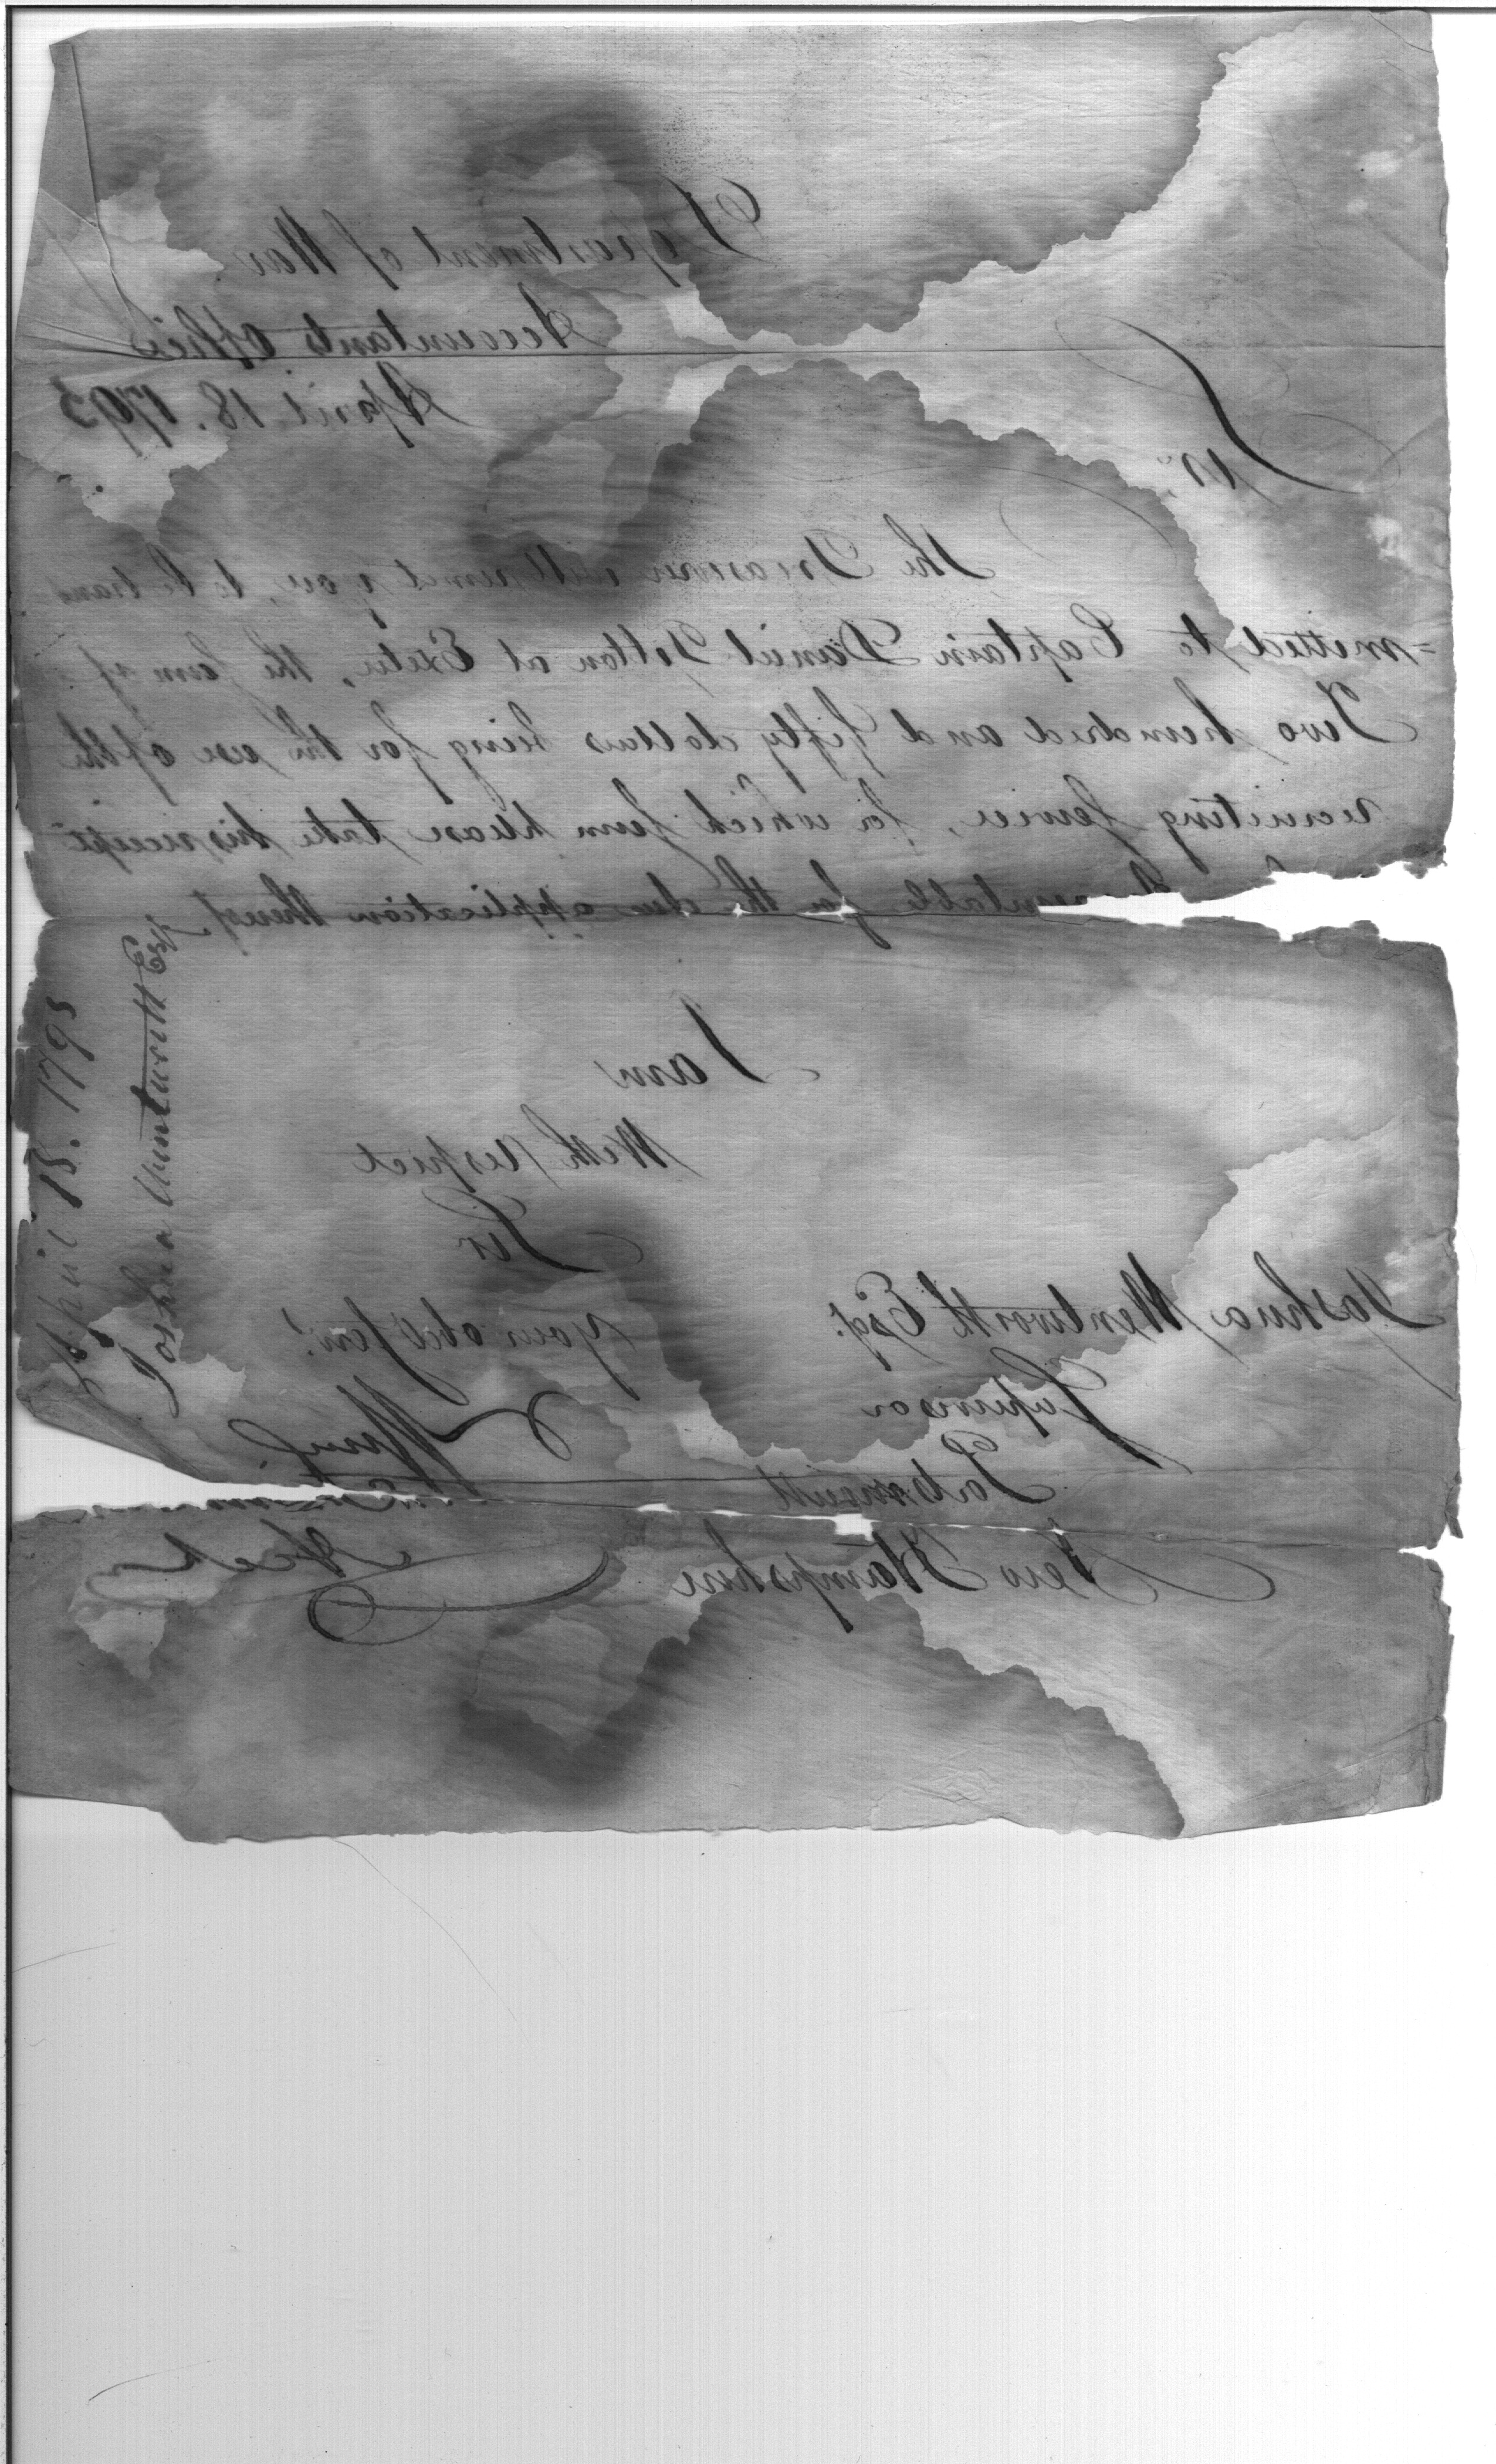 Department of War
Accountants Office
April 18. 1793
Sir
The Treasurer will remit you, to be trans
=mitted to Captain Daniel Tilton at Exeter, the sum of
Two hundred and fifty dollars being for the use of the
recruiting service, for which sum please take his receipt
Accountable for the due application thereof
I am
With respect
Sir
your obed serv.t
Joshua Wentworth Esq.
Supervisor
Portsmouth
New Hampshire
April 18. 1793
Joshua Wentworth Esq